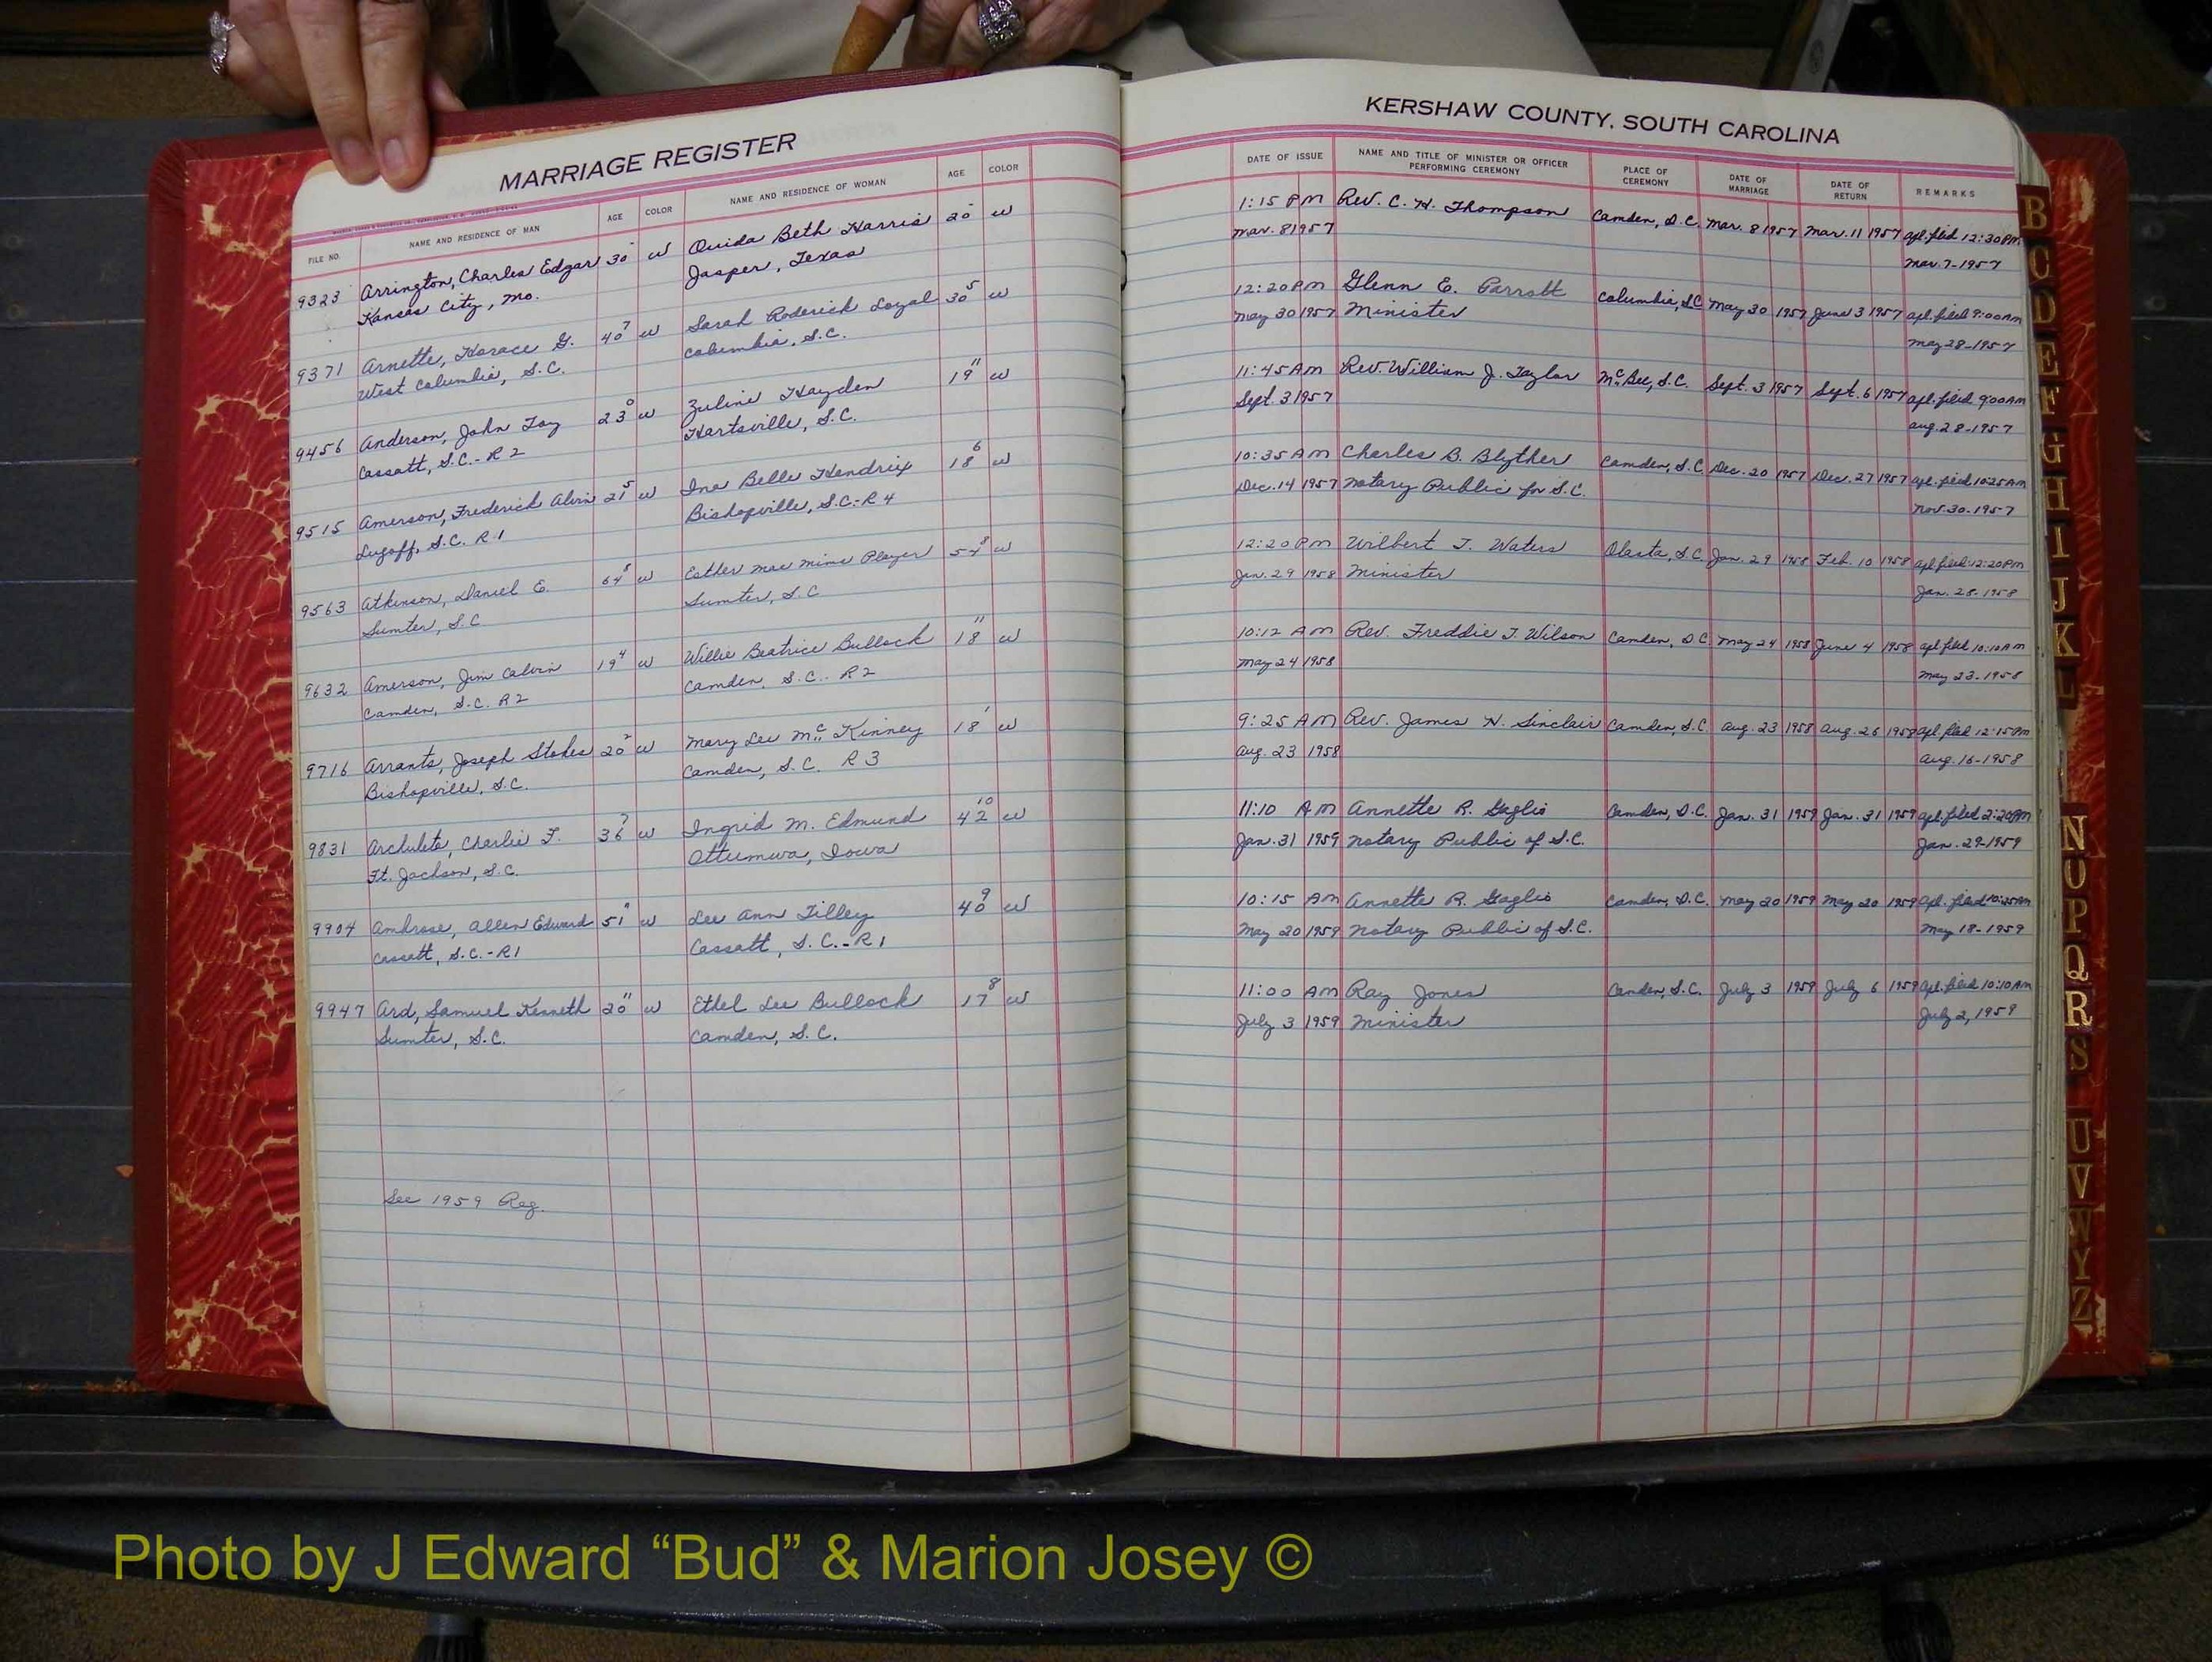 MARRIAGE REGISTER
FILE NO. NAME AND RESIDENCE OF MAN AGE COLOR NAME AND RESIDENCE OF WOMAN AGE COLOR
9323 Arrington, Charles Edgar 30 w Ouida Beth Harris 20 w
Kansas City, Mo. Jasper, Texas
9371 Arnette, Horace G. 40 7 w Sarah Roderick Loyal 30 5 w
West Columbia, S.C. Columbia, S.C.
9456 Anderson, John Foy 23 0 w Zuline Hayden 19 11 w
Cassatt, S.C. - R 2 Hartsville, S.C.
9515 Amerson, Frederick Alvin 21 5 w Ina Belle Hendrix 18 6 w
Lugoff, S.C. R 1 Bishopville, S.C. - R 4
9563 Atkinson, Daniel E. 64 8 w Esther mae mims Player 54 w
Sumter, S.C Sumter, S.C
9632 Amerson, Jim Calvin 19 4 w Willie Beatrice Bullock 18 11 w
Camden, S.C. R2 Camden, S.C. R2
9716 Arrants, Joseph Stokes 20 2 w Mary Lee McKinney 18 1 w
Bishopville, S.C. Camden, S.C. R 3
9831 Archuleta, Charlie F. 36 7 w Ingrid M. Edmund 42 10 w
Ft. Jackson, S.C. Ottumwa, Iowa
9904 Ambrose, Allen Edward 51 w Lee Ann Tilley 40 9 w
Cassatt, S.C. - R1 Cassatt, S.C. - R1
9947 Ard, Samuel Kenneth 20 11 w Ethel Lee Bullock 17 8 w
Sumter, S.C. Camden, S.C.
See 1959 Reg.
KERSHAW COUNTY, SOUTH CAROLINA
DATE OF ISSUE NAME AND TITLE OF MINISTER OR OFFICER PERFORMING CEREMONY PLACE OF CEREMONY DATE OF MARRIAGE DATE OF RETURN REMARKS
1:15 PM Rev. C. H. Thompson Camden, S.C. Mar. 8 1957 Mar. 11 1957 apl. filed 12:30 PM
Mar. 8 1957 Mar. 7-1957
12:20 PM Glenn E. Parrott Columbia, S.C May 30 1957 June 3 1957 apl. filed 9:00 AM
May 30 1957 Minister May 28-1957
11:45 AM Rev. William J. Taylor McBee, S.C. Sept. 3 1957 Sept. 6 1957 apl. filed 9:00 AM
Sept. 3 1957 Aug. 28-1957
10:35 AM Charles B. Blyther Camden, S.C. Dec. 20 1957 Dec. 27 1957 apl. filed 10:25 AM
Dec. 14 1957 Notary Public for S.C. Nov. 30-1957
12:20 PM Wilbert T. Waters Olanta, S.C. Jan. 29 1958 Feb. 10 1958 apl. filed: 12:20 PM
Jan. 29 1958 Minister Jan. 28-1958
10:12 AM Rev. Freddie T. Wilson Camden, S.C. May 24 1958 June 4 1958 apl. filed 10:10 AM
May 24 1958 May 23-1958
9:25 AM Rev. James N. Sinclair Camden, S.C. Aug. 23 1958 Aug. 26 1958 apl. filed 12:15 PM
Aug. 23 1958 Aug. 16-1958
11:10 AM Annette R. Gaglio Camden, S.C. Jan. 31 1959 Jan. 31 1959 apl. filed 2:20 PM
Jan. 31 1959 Notary Public of S.C. Jan. 29-1959
10:15 AM Annette R. Gaglio Camden, S.C. May 20 1959 May 20 1959 apl. filed 10:25 AM
May 20 1959 Notary Public of S.C. May 18-1959
11:00 AM Ray Jones Camden, S.C. July 3 1959 July 6 1959 apl. filed 10:10 AM
July 3 1959 Minister July 2, 1959
B
C
D
E
F
G
H
I
J
K
L
N
O
P
Q
R
S
U
V
W
Y
Z
Photo by J Edward “Bud” & Marion Josey ©